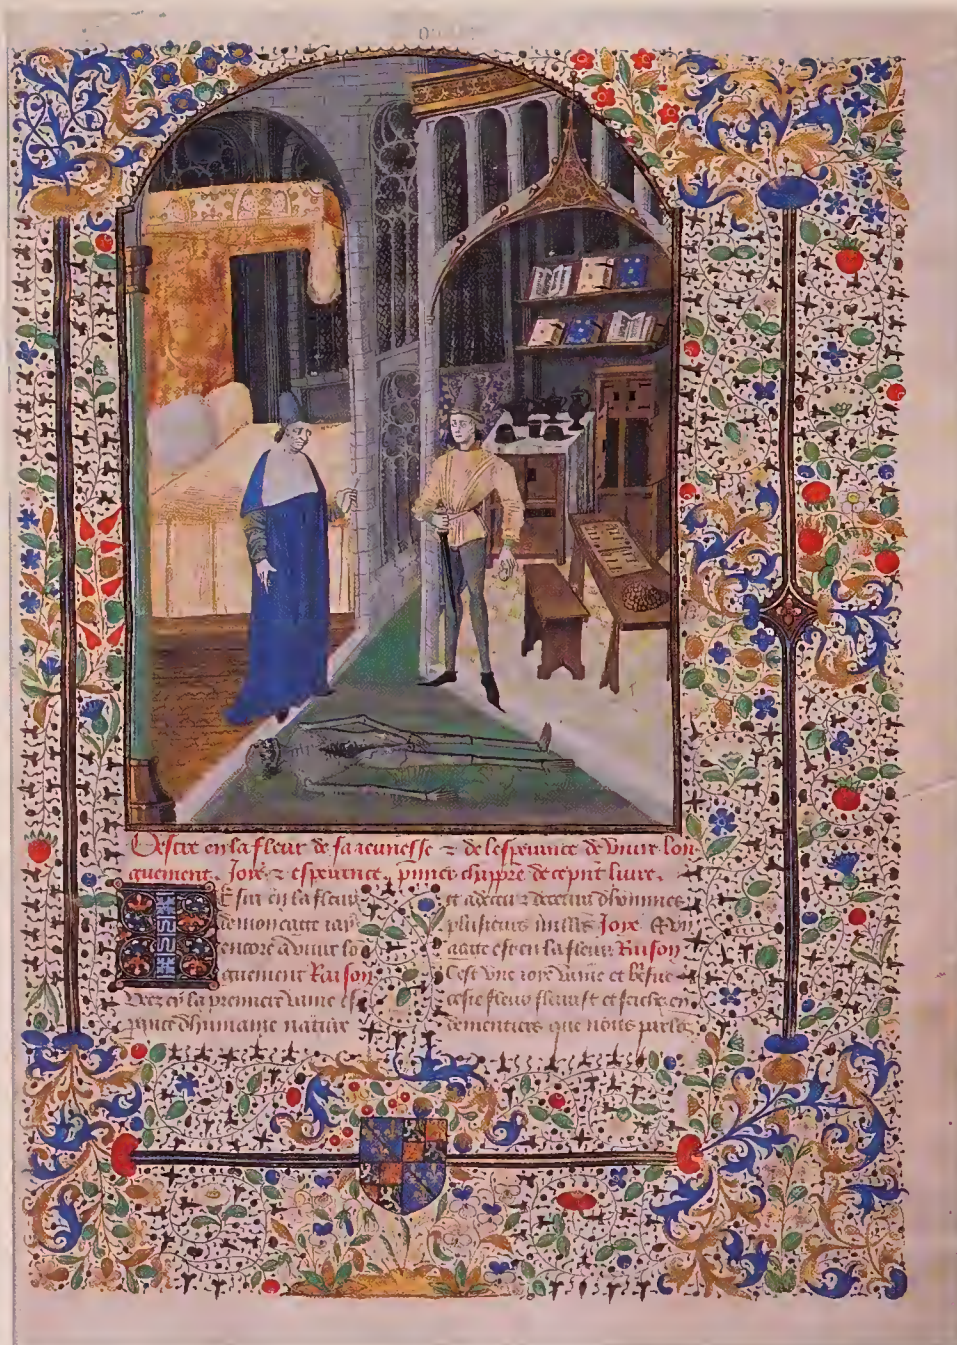 Destre en la fleur de sa jeunesse & de lesperance de vivre lon
guement. Joye & esperance. premier chappitre de cepnt livre.
E suy en la fleur
de mon eage jay
encore a vivre lo
guement Raison
Veez cy la premiere vaine es
perance dhumaine nature
et a deceu & decevra dhommes
plusieurs milles Joye Mon
aage est en sa fleur Raison
Cest une joye vaine et bsfve
ceste fleur flaist et seiche en
dementiers que nous parlos